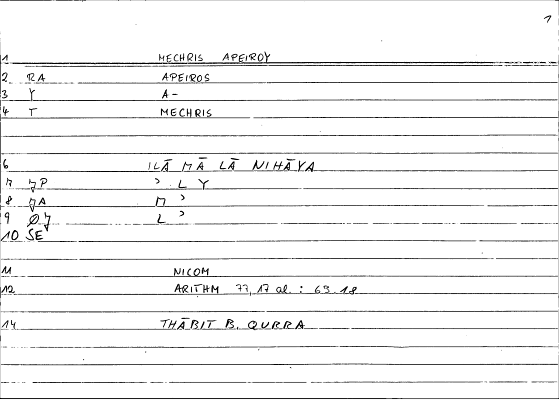 1
1 MECHRIS APEIROY
2 RA APEIROS
3 Y A-
4 T MECHRIS
6 ILĀ MĀ LĀ NIHĀYA
7 P ʾ L Y
8 A M ʾ
9 Ø L ʾ
10 SE
11 NICOM
12 ARITHM 77,17 al. : 63.18
14 THĀBIT B. QURRA